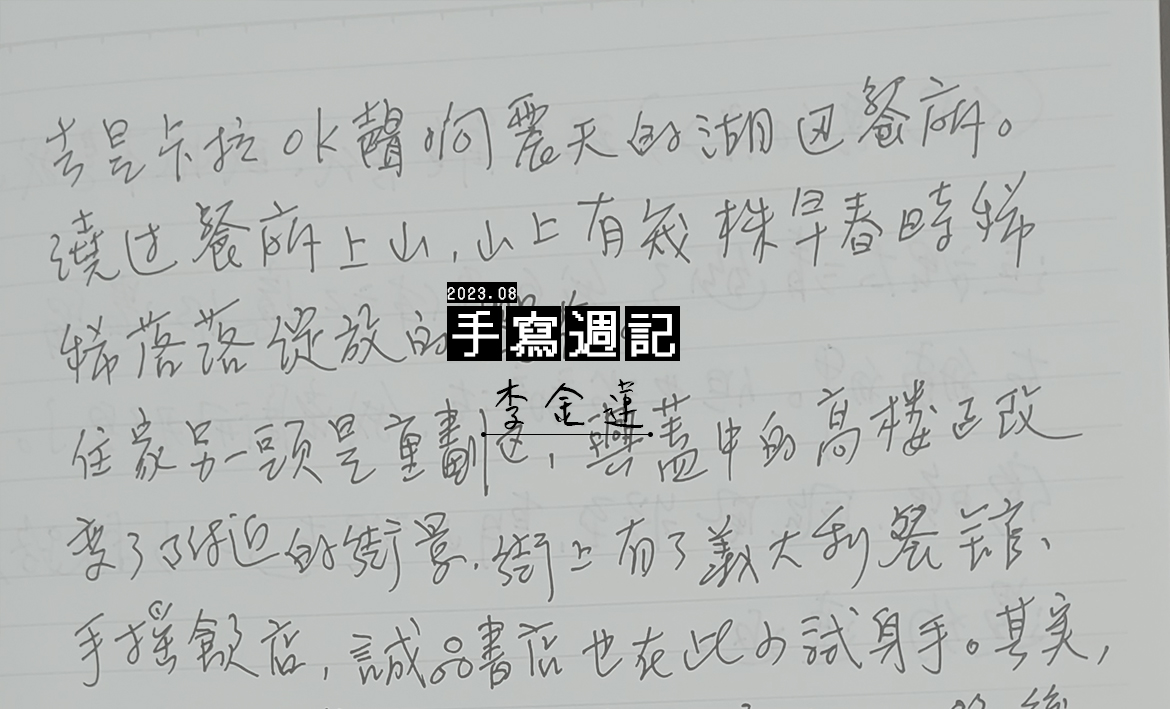 去是卡拉OK聲响震天的湖边餐廳。
繞过餐廳上山,山上有幾株早春時稀
稀落落綻放的
2023.08
手寫週記
李金蓮
住家另一頭是重劃区,興蓋中的高楼正改
变了附近的街景,街上有了義大利餐館、
手搖飲店,誠品書店也在此小試身手。其实,